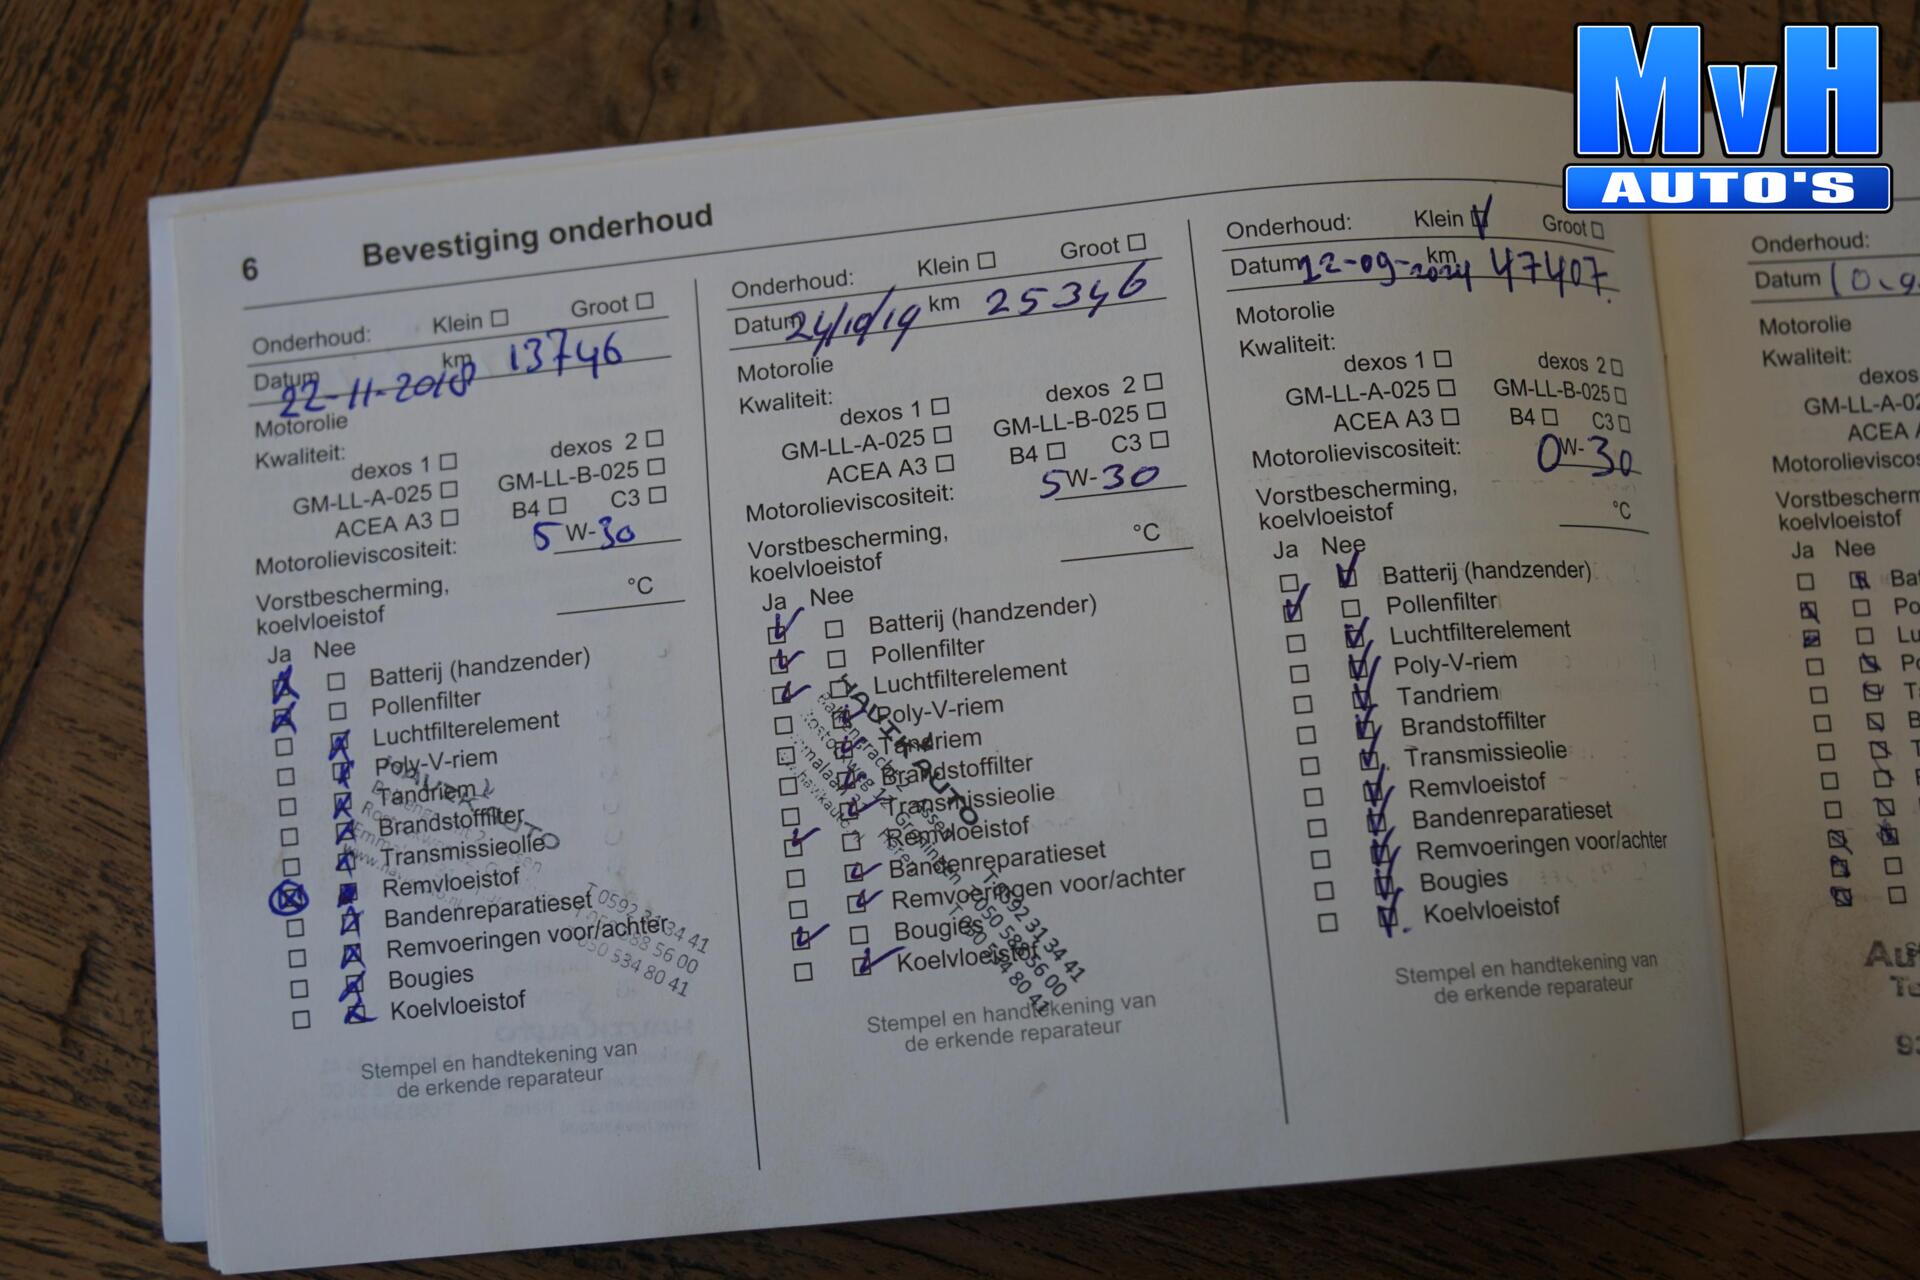 MvH
AUTO'S
6 Bevestiging onderhoud
Onderhoud: Klein Groot
Datum 22-11-2018 km 13746
Motorolie
Kwaliteit:
dexos 1 dexos 2
GM-LL-A-025 GM-LL-B-025
ACEA A3 B4 C3
Motorolieviscositeit: 5 W-30
Vorstbescherming,
koelvloeistof °C
Ja Nee
Batterij (handzender)
Pollenfilter
Luchtfilterelement
Poly-V-riem
Tandriem
Brandstoffilter
Transmissieolie
Remvloeistof
Bandenreparatieset
Remvoeringen voor/achter
Bougies
Koelvloeistof
T 0592 31 34 41
050 534 80 41
Stempel en handtekening van
de erkende reparateur
Onderhoud: Klein Groot
Datum 24/10/19 km 25346
Motorolie
Kwaliteit:
dexos 1 dexos 2
GM-LL-A-025 GM-LL-B-025
ACEA A3 B4 C3
Motorolieviscositeit: 5 W-30
Vorstbescherming,
koelvloeistof °C
Ja Nee
Batterij (handzender)
Pollenfilter
Luchtfilterelement
Poly-V-riem
Tandriem
Brandstoffilter
Transmissieolie
Remvloeistof
Bandenreparatieset
Remvoeringen voor/achter
Bougies
Koelvloeistof
HAVIK AUTO
T 0592 31 34 41
T 050 588 56 00
T 050 534 80 41
Stempel en handtekening van
de erkende reparateur
Onderhoud: Klein Groot
Datum 12-09-2024 km 47407
Motorolie
Kwaliteit:
dexos 1 dexos 2
GM-LL-A-025 GM-LL-B-025
ACEA A3 B4 C3
Motorolieviscositeit: 0 W-30
Vorstbescherming,
koelvloeistof °C
Ja Nee
Batterij (handzender)
Pollenfilter
Luchtfilterelement
Poly-V-riem
Tandriem
Brandstoffilter
Transmissieolie
Remvloeistof
Bandenreparatieset
Remvoeringen voor/achter
Bougies
Koelvloeistof
Stempel en handtekening van
de erkende reparateur
Onderhoud:
Datum
Motorolie
Kwaliteit:
dexos
GM-LL-A-02
ACEA
Motorolieviscos
Vorstbescherm
koelvloeistof
Ja Nee